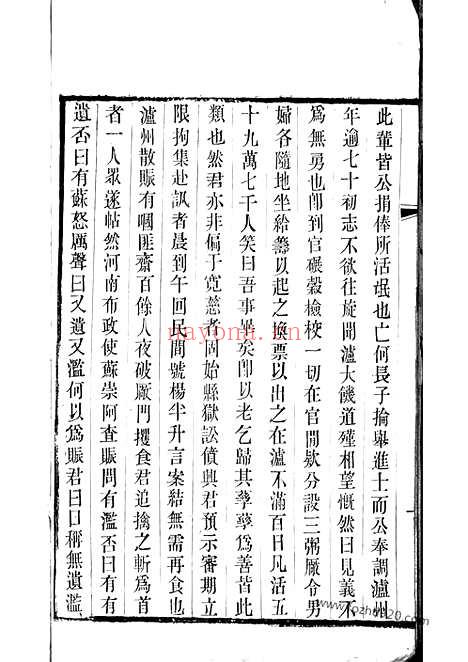 此輩皆公捐俸所活氓也亡何長子掄舉進士而公奉調瀘州
年逾七十初志不欲往旋聞瀘大磯道殣相望慨然曰見義不
爲無勇也卽到官碾穀檢校一切在官閒欵分設三粥厰令男
婦各隨地坐給籌以起之換票以出之在瀘不滿百日凡活五
十九萬七千人笑曰吾事畢矣卽以老乞歸其孳孳爲善皆此
類也然君亦非偏于寛慈者固始縣獄訟僨興君預示審期立
限拘集赴訊者晨到午回民間號楊半升言案結無需再食也
瀘州散賑有嘓匪齋百餘人夜破厰門攫食君追擒之斬爲首
者一人眾遂帖然河南布政使蘇崇阿查賑問有濫否曰有有
遺否曰有蘇怒厲聲曰又遺又濫何以爲賑君曰口稱無遺濫
nayona.cn